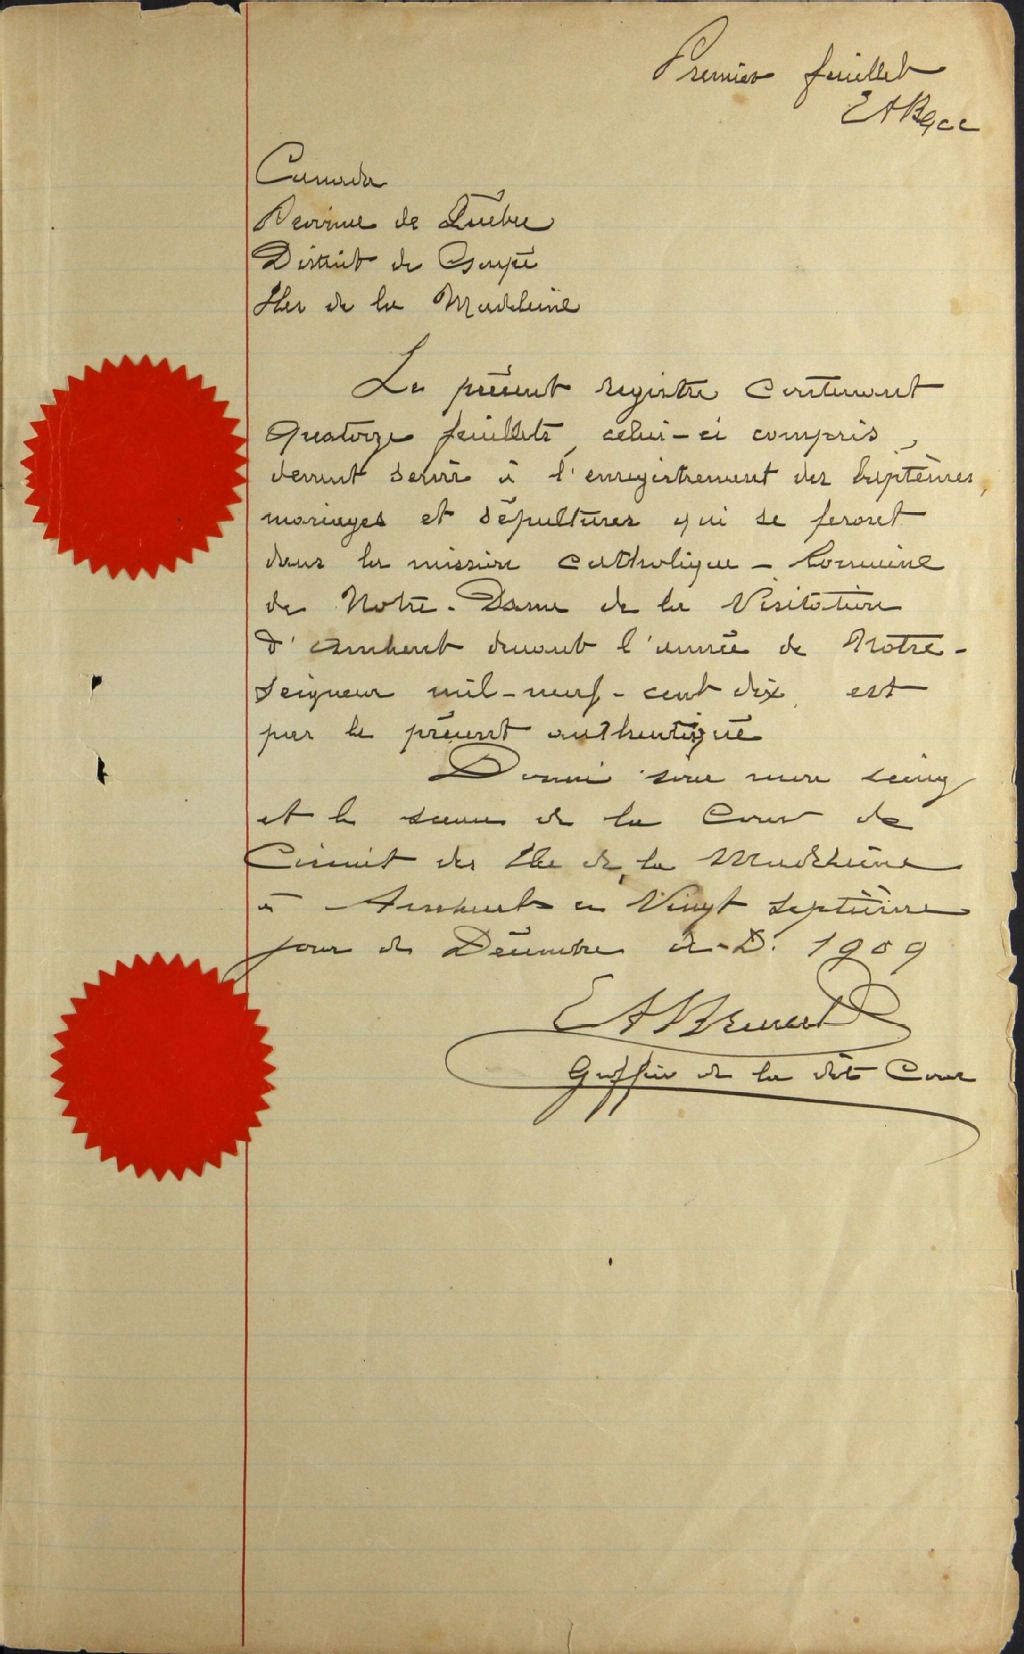 Premier feuillet
EAB gcc
Canada
Province de Québec
District de Gaspé
Iles de la Madeleine
Le présent registre contenant
quatorze feuillets, celui-ci compris,
devant servir à l'enregistrement des baptêmes,
mariages et sépultures qui se feront
dans la mission catholique - Romaine
de Notre-Dame de la Visitation
d'Amherst durant l'année de Notre-
Seigneur mil-neuf-cent dix, est
par le présent authentiqué
Donné sous mon seing
et le sceau de la Cour de
Circuit des Iles de la Madeleine
à Amherst ce Vingt septième
jour de Décembre A.D. 1909
EA
Greffier de la dite Cour